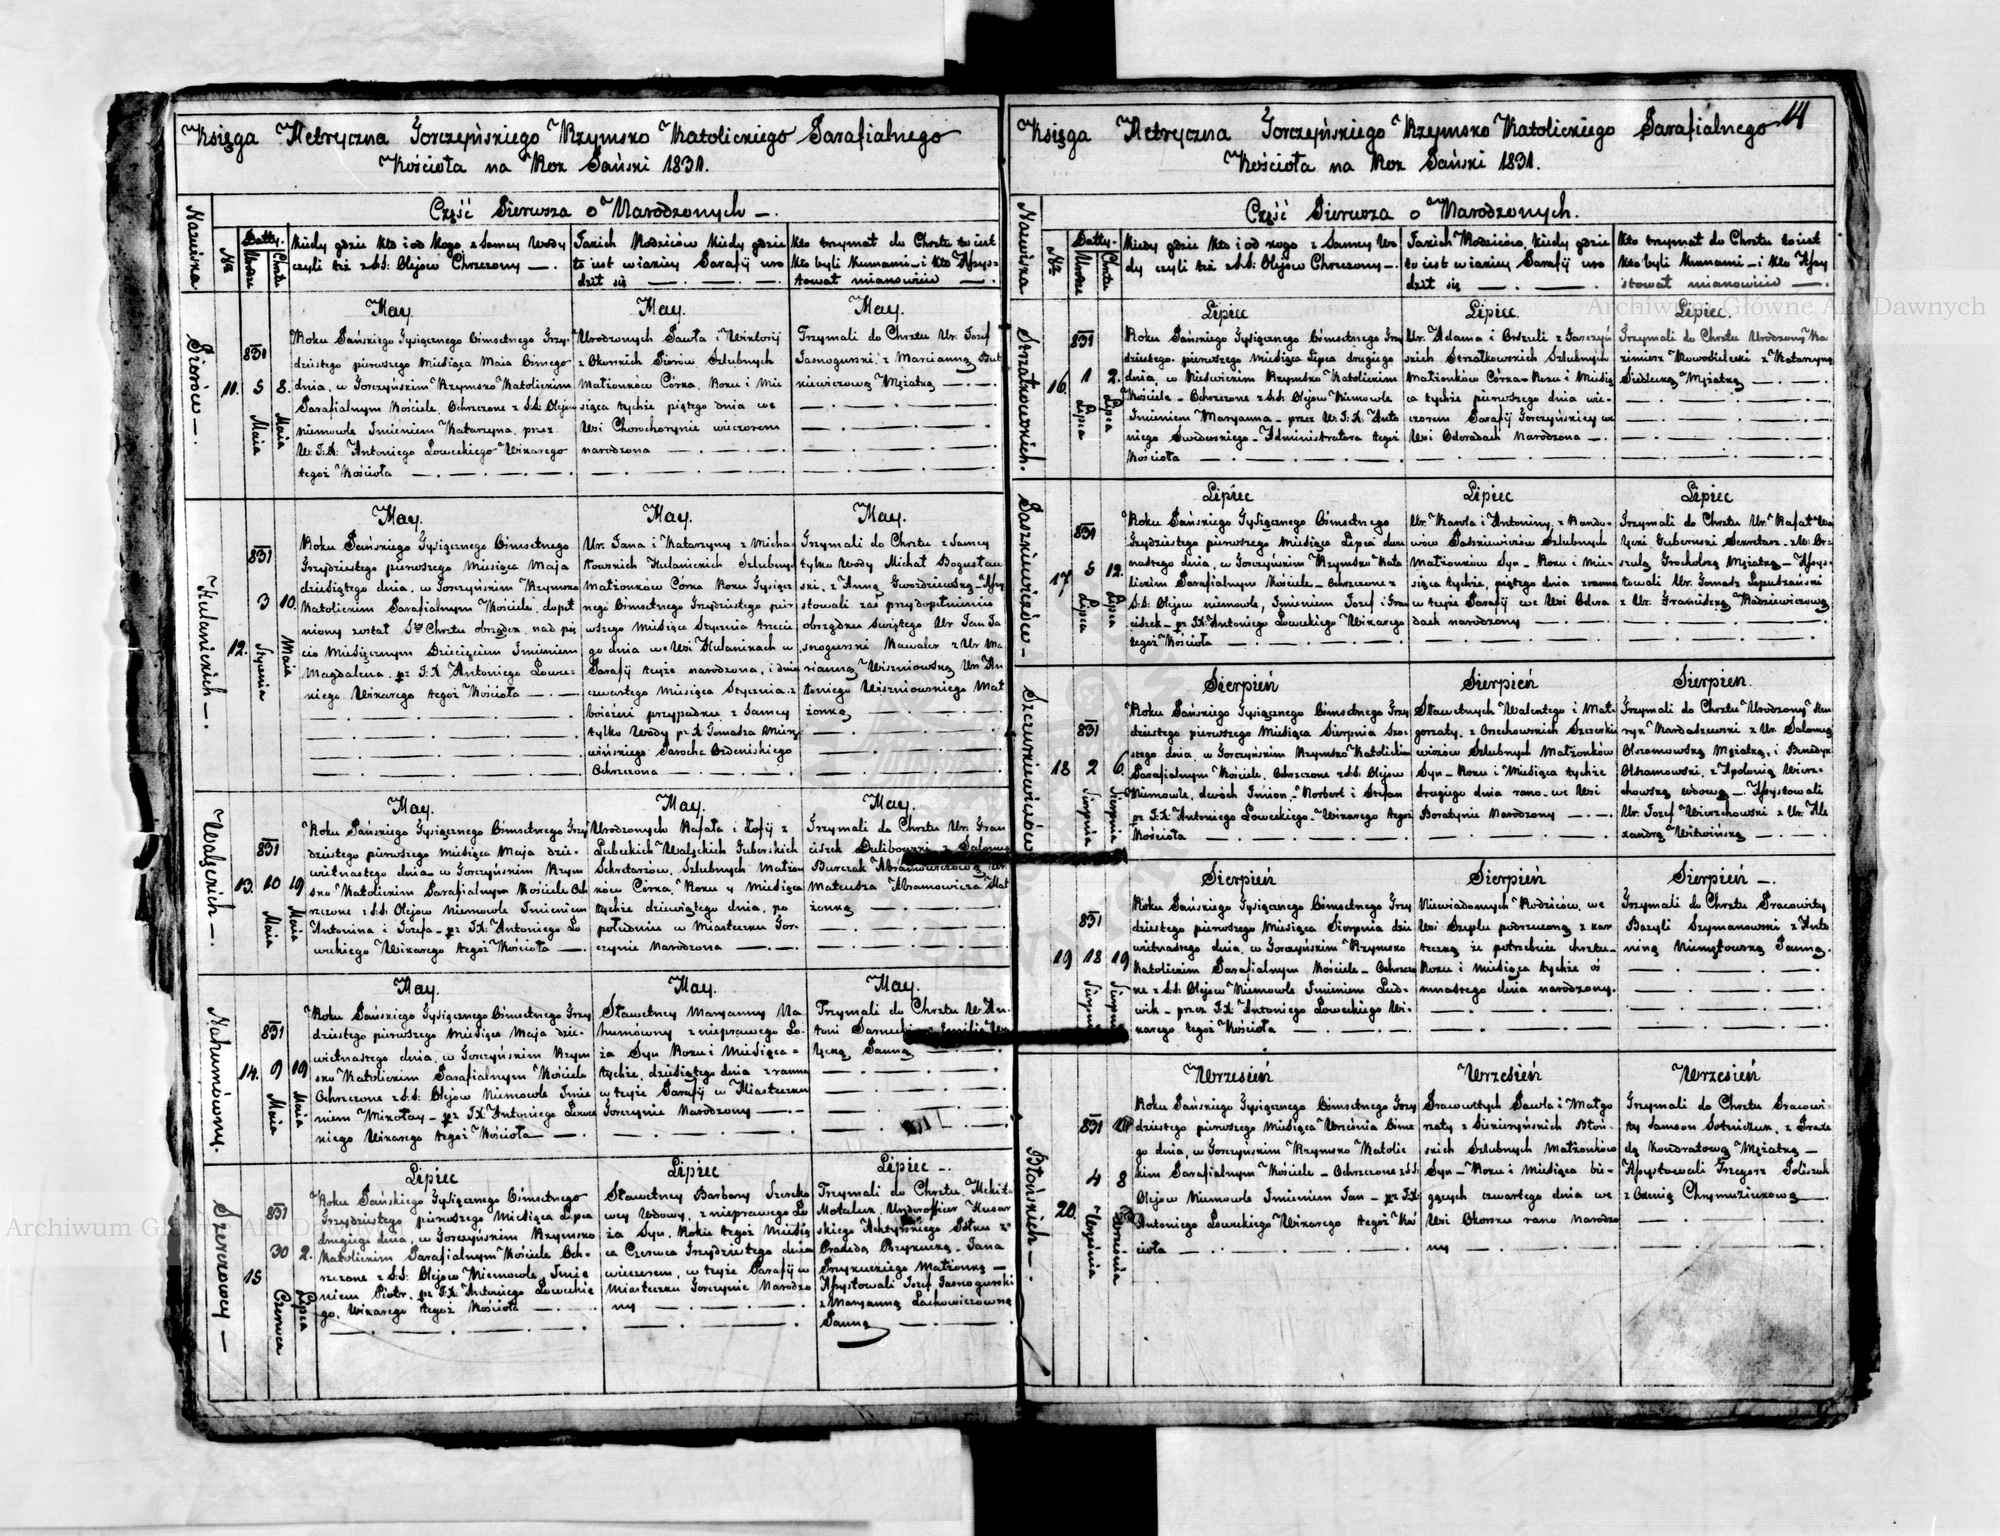 Księga Metryczna Gorczyńskiego Rzymsko Katolickiego Parafialnego
Kościoła na Rok Pański 1831.
Część Pierwsza o Narodzonych —.
Nazwiska
Nra
Datty.
Urodze
Chrztu
Kiedy gdzie kto i od kogo z Samey Wody
czyli też z SS: Olejów Chrzczony —.
Jakich Rodziców Kiedy gdzie
to iest w iakiey Parafij uro
dził się
Kto trzymał do Chrztu to iest
kto byli Kumami — i kto Assys-
tował mianowicie —.
Piorów —.
11.
831
5
Maia
8.
Maia
May.
Roku Pańskiego Tysiącznego Ośmsetnego Trzy-
dziestego pierwszego Miesiąca Maia Osmego
dnia, w Gorczyńskim Rzymsko Katolickim
Parafialnym Kościele, Ochrzczone z SS: Olejów
niemowle Imieniem Katarzyna, przez
W: J:X: Antoniego Łoweckiego Wikarego
tegoż Kościoła
May.
Urodzonych Pawła i Wiktorij
z Okorskich Piorów Szlubnych
Małżonków Córka, Roku i Mie
siąca tychże piątego dnia we
Wsi Chorochorynie wieczorem
narodzona
May.
Trzymali do Chrztu Ur. Jozef
Jasnogurski, z Marcianną But
kiewiczową Mężatką
Hulanickich —.
12.
831
3
Stycznia
10.
Maia
May.
Roku Pańskiego Tysiącznego Ośmsetnego
Trzydziestego pierwszego Miesiąca Maja
dziesiątego dnia, w Gorczyńskim Rzymsko
Katolickim Parafialnym Kościele, dopeł
niony został S° Chrztu obrządek, nad pię
cio Miesięcznym Dziecięciem Imieniem
Magdalena, pz J:X Antoniego Łowec-
kiego Wikarego tegoż Kościoła
May.
Ur. Jana i Katarzyny z Micha
łowskich Hulanickich Szlubnych
Małżonków Córka Roku Tysiącz
nego Ośmsetnego Trzydziestego pier
wszego Miesiąca Stycznia trzecie
go dnia we Wsi Hulanikach w
Parafij teyże narodzona, i dnia
czwartego Miesiąca Stycznia z
boiaźni przypadku z Samey
tylko Wody pz X: Tomasza
Parocha
Ochrzczona
May.
Trzymali do Chrztu z Samey
tylko Wody Michał Bogusław
ski, z Anną Gwozdziewską — Assy
stowali zaś przy dopełnieniu
obrządku świętego Ur Jan Ja
snogurski Kawaler z Ur Ma
rianną Wiszniowską Ur: An
toniego Wiszniowskiego Mał
żonką
Wałęckich —.
13.
831
10
Maia
19
Maia
May.
Roku Pańskiego Tysiącznego Ośmsetnego Trzy
dziestego pierwszego Miesiąca Maja dzie-
więtnastego dnia w Gorczyńskim Rzym
sko Katolickim Parafialnym Kościele Och
rzczone z SS. Olejów Niemowle Imieniem
Antonina i Jozefa — pz JX: Antoniego Ło
weckiego Wikarego tegoż Kościoła
May.
Urodzonych Rafała i Zofij z
Lubeckich Wałęckich Guberskich
Sekretarzów, Szlubnych Małżon
ków Córka, Roku y Miesiąca
tychże dziewiątego dnia, po
południu w Miasteczku Gor-
czynie Narodzona
May.
Trzymali do Chrztu Ur. Fran
ciszek Dulibowski z Salomeą
Burczak Abramowiczową Ur.
Mateusza Abramowicza Mał
żonką
Nahumówny.
14.
831
9
Maia
19
Maia
May.
Roku Pańskiego Tysiącznego Ośmsetnego Trzy
dziestego pierwszego Miesiąca Maja dzie-
więtnastego dnia, w Gorczyńskim Rzym
sko Katolickim Parafialnym Kościele
Ochrzczone z SS: Olejów Niemowle Imie
niem Mikołay — pz JX: Antoniego Łowec
kiego Wikarego tegoż Kościoła
May.
Sławetney Maryanny Na
humówny z nieprawego Ło-
ża Syn Roku i Miesiąca
tychże, dziesiątego dnia z rana
w teyże Parafij w Miasteczku
Gorczynie Narodzony
May.
Trzymali do Chrztu W. An
toni z Emilią
Panną
Szerzkowey —
15
831
30
Czerwca
2.
Lipca
Lipiec
Roku Pańskiego Tysiącznego Ośmsetnego
Trzydziestego pierwszego Miesiąca Lipca
drugiego dnia, w Gorczyńskim Rzymsko
Katolickim Parafialnym Kościele Och-
rzczone z SS: Olejów Niemowle Imie
niem Piotr, pz JX Antoniego Łoweckie
go, Wikarego tegoż Kościoła
Lipiec
Sławetney Barbary Szerzko
wey Wdowy, z nieprawego Ło
ża Syn, Roku tegoż Miesią
ca Czerwca Trzydziestego dnia
wieczorem, w teyże Parafij w
Miasteczku Gorczynie Narodzo
ny
Lipiec —.
Trzymali do Chrztu Mekita
Motaluk, Underofficer Husar
skiego Achtyrskiego Półku z
Jana
Małżonką —
Assystowali Jozef Jasnogurski
z Maryanną Lachowiczowną
Panną
14
Księga Metryczna Gorczyńskiego Rzymsko Katolickiego Parafialnego
Kościoła na Rok Pański 1831.
Część Pierwsza o Narodzonych.
Nazwiska
Nra
Datty.
Urodze
Chrztu
Kiedy gdzie kto i od kogo z Samey Wo
dy czyli też z SS: Olejów Chrzczony —.
Jakich Rodziców, kiedy gdzie
to iest w iakiey Parafij uro
dził się
Kto trzymał do Chrztu to iest
kto byli Kumami — i kto Assy
stował mianowicie
Strzałkowskich.
16
831
1
Lipca
2.
Lipca
Lipiec
Roku Pańskiego Tysiącznego Ośmsetnego Trzy
dziestego pierwszego Miesiąca Lipca drugiego
dnia, w Nieświckim Rzymsko Katolickim
Kościele — Ochrzczone z SS: Olejów Niemowle
Imieniem Maryanna — przez W. J:X: Anto
niego Swiderskiego — Administratora tegoż
Kościoła
Lipiec.
Ur. Adama i Orszuli z Garczyń
skich Strzałkowskich Szlubnych
Małżonków Córka Roku i Miesią
ca tychże pierwszego dnia wie-
czorem Parafij Gorczyńskiey we
Wsi Odoradach Narodzona
Lipiec.
Trzymali do Chrztu Urodzony Ka
zimierz Nowosielecki z Katarzyną
Siedlecką Mężatką
Paszkiewiczów —
17
831
5
Lipca
12.
Lipca
Lipiec
Roku Pańskiego Tysiącznego Ośmsetnego
Trzydziestego pierwszego Miesiąca Lipca dwu
nastego dnia, w Gorczyńskim Rzymsko Kato
lickim Parafialnym Kościele — Ochrzczone z
SS: Olejów niemowle, Imieniem Jozef i Fran
ciszek — pz JX: Antoniego Łoweckiego Wikarego
tegoż Kościoła
Lipiec
Ur. Karola i Antoniny z Randu-
wiców Paszkiewiczów Szlubnych
Małżonków Syn — Roku i Mie-
siąca tychże, piątego dnia z rana
w teyże Parafij we Wsi Odora
dach narodzony
Lipiec
Trzymali do Chrztu Ur. Rafał Wa
łęcki Gubernski Sekretarz z Ur: Or
szulą Grocholską Mężatką — Assys-
towali Ur. Tomasz Łopuszański
z Ur. Franciszką Radziewiczową
Szczurkiewiczów
18
831
2
Sierpnia
6.
Sierpnia
Sierpień
Roku Pańskiego Tysiącznego Ośmsetnego Trzy
dziestego pierwszego Miesiąca Sierpnia Szo-
stego dnia, w Gorczyńskim Rzymsko Katolickim
Parafialnym Kościele, Ochrzczone z SS. Olejów
Niemowle, dwóch Imion — Norbert i Stefan
pz JX: Antoniego Łoweckiego Wikarego tegoż
Kościoła
Sierpień
Sławetnych Walentego i Mał-
gorzaty, z Orzechowskich Szczurkie
wiczów Szlubnych Małżonków
Syn — Roku i Miesiąca tychże
drugiego dnia rano we Wsi
Boratynie Narodzony
Sierpień.
Trzymali do Chrztu Urodzony Hen
ryk Kardaszewski z Ur. Salomeą
Olszamowską Mężatką, i Benedykt
Olszamowski, z Apolonią Wierz-
chowską Wdową — Assystowali
Ur. Jozef Wierzchowski z Ur. Ale
xandrą Witwińską
19
831
18
Sierpnia
19
Sierpnia
Sierpień
Roku Pańskiego Tysiącznego Ośmsetnego Trzy
dziestego pierwszego Miesiąca Sierpnia dzie
więtnastego dnia, w Gorczyńskim Rzymsko
Katolickim Parafialnym Kościele — Ochrzczo
ne z SS: Olejów Niemowle Imieniem Lud-
wik — przez JX Antoniego Łoweckiego Wi-
karego tegoż Kościoła
Sierpień
Niewiadomych Rodziców, we
Wsi Szeplu podrzucony z kar
teczką że potrzebuie chrztu —
Roku i Miesiąca tychże oś
mnastego dnia narodzony.
Sierpień —.
Trzymali do Chrztu Pracowity
Bazyli Szymanowski z Anto
niną Niemytowską Panną.
Błońskich —.
20.
831
4
Września
8
Września
Wrzesień
Roku Pańskiego Tysiącznego Ośmsetnego Trzy
dziestego pierwszego Miesiąca Września Osme
go dnia, w Gorczyńskim Rzymsko Katolic
kim Parafialnym Kościele — Ochrzczone z SS:
Olejów Niemowle Imieniem Jan — pz JX:
Antoniego Łoweckiego Wikarego tegoż Koś
cioła
Wrzesień
Pracowitych Pawła i Małgo
rzaty z Siekierzyńskich Błoń-
skich Szlubnych Małżonków
Syn — Roku i Miesiąca bie-
gących czwartego dnia we
Wsi Okorsku rano Narodzo
ny
Wrzesień
Trzymali do Chrztu Pracowi-
ty Samson Sotniczuk, z Praxe
dą Kondratową Mężatką —
Assystowali Grzegorz Poliszuk
z Oxenią Chrymuziukową
Archiwum Główne Akt Dawnych
Archiwum Główne Akt Dawnych